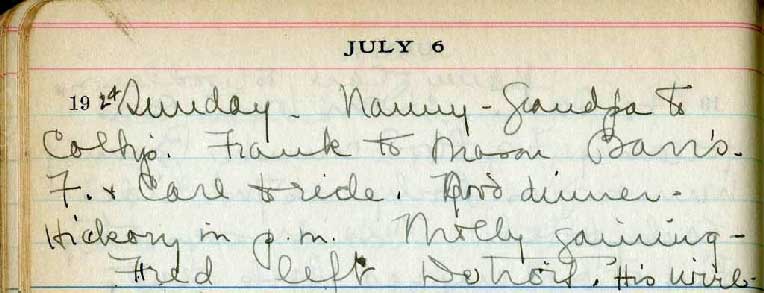 JULY 6
1924 Sunday. Nanny - Grandpa to
Frank to Mason Barr's.
F. & Carl to ride. Good dinner -
Hickory in p.m. Molly gaining -
Fred left Detroit. His wire -